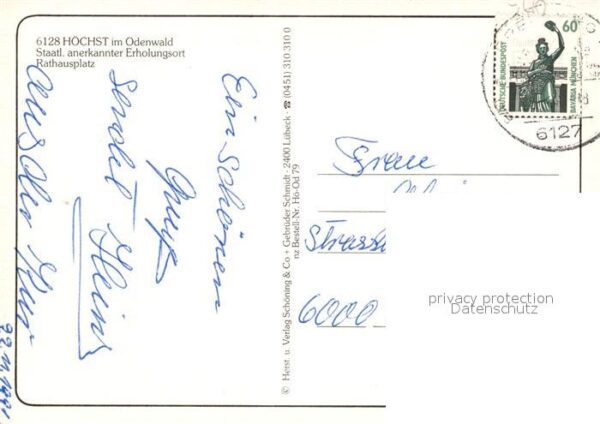 6128 HÖCHST im Odenwald
Staatl. anerkannter Erholungsort
Rathausplatz
Ein schönen
Gruß
sendet Heinz
aus dem
22.11.1991
© Herst. u. Verlag Schöning & Co + Gebrüder Schmidt · 2400 Lübeck · ☎ (0451) 310 310 0
nz Bestell-Nr. Hö-Od 79
60
DEUTSCHE BUNDESPOST
BAVARIA MÜNCHEN
6127
Frau
6000
privacy protection
Datenschutz